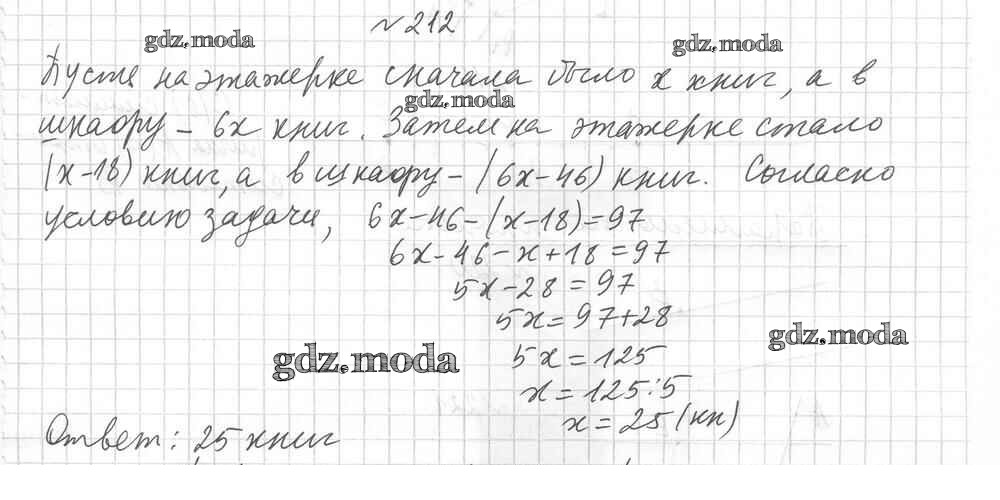 № 212
gdz.moda
gdz.moda
Пусть на этажерке сначала было x книг, а в
gdz.moda
шкафу - 6x книг. Затем на этажерке стало
(x-18) книг, а в шкафу - (6x-46) книг. Согласно
условию задачи, 6x-46-(x-18)=97
6x-46-x+18=97
5x-28=97
5x=97+28
gdz.moda
gdz.moda
5x=125
x=125:5
x=25 (кн)
Ответ: 25 книг